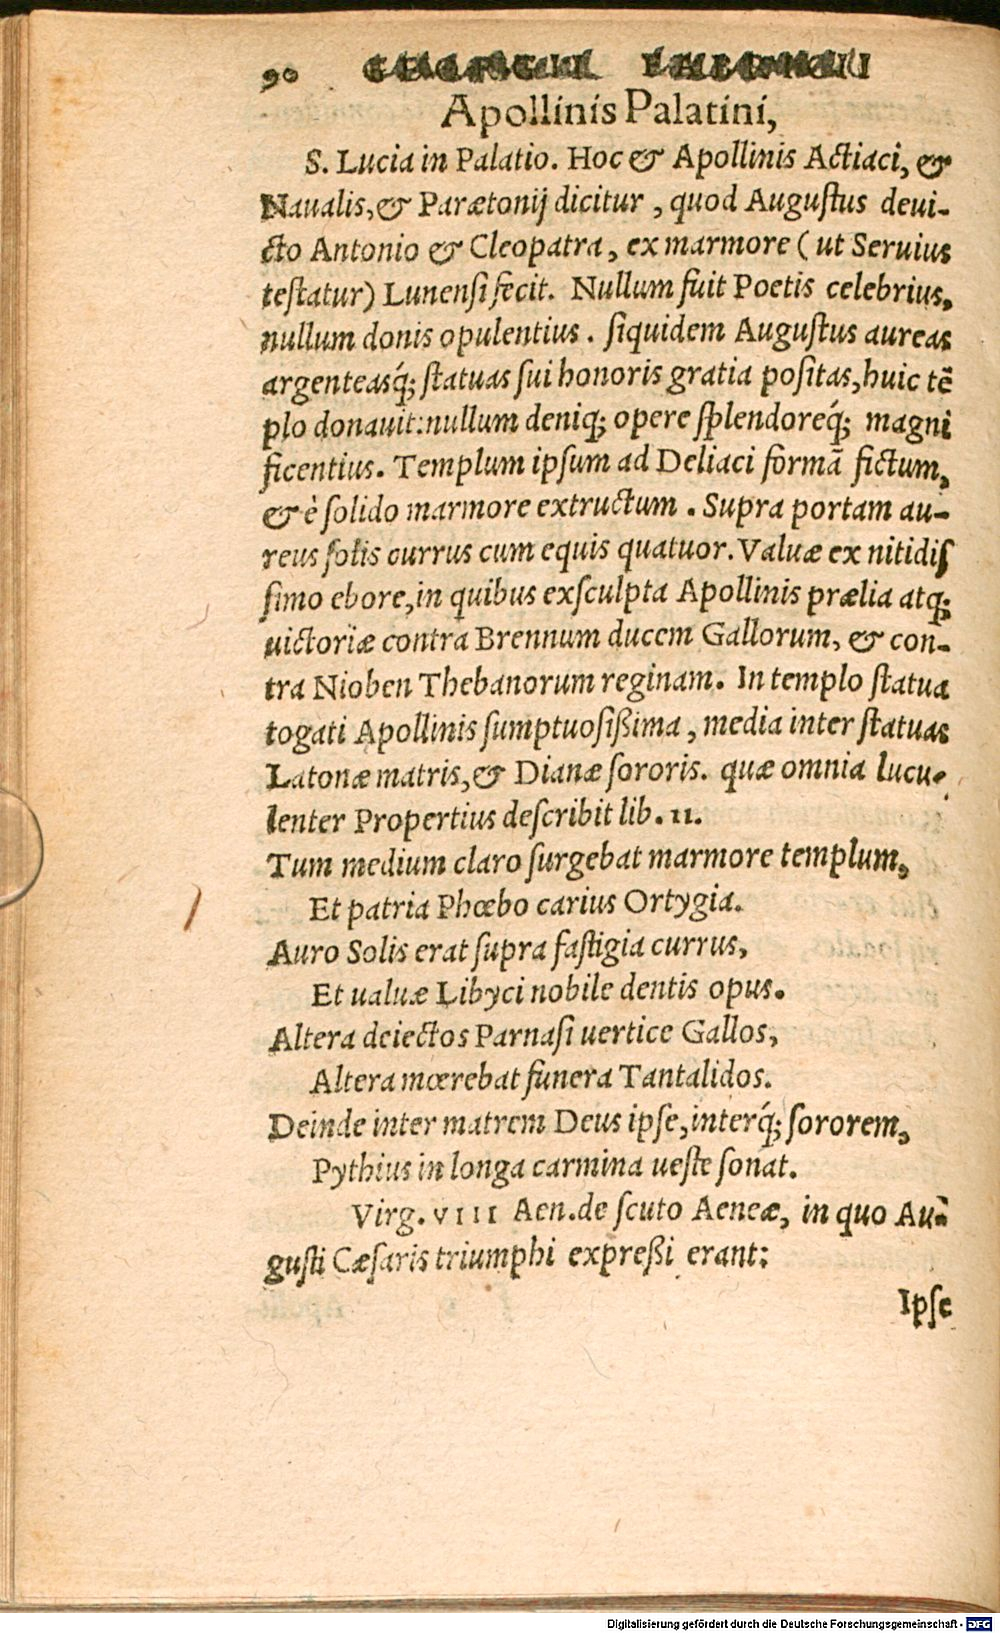 90
Apollinis Palatini,
S. Lucia in Palatio. Hoc & Apollinis Actiaci, &
Naualis, & Parætonij dicitur, quod Augustus deui-
cto Antonio & Cleopatra, ex marmore (ut Seruius
testatur) Lunensi fecit. Nullum fuit Poetis celebrius,
nullum donis opulentius. siquidem Augustus aureas
argenteasq́; statuas sui honoris gratia positas, huic tē
plo donauit: nullum deniq; opere splendoreq́; magni
ficentius. Templum ipsum ad Deliaci formā fictum,
& è solido marmore extructum. Supra portam au-
reus solis currus cum equis quatuor. Valuæ ex nitidis
simo ebore, in quibus exsculpta Apollinis prælia atq;
uictoriæ contra Brennum ducem Gallorum, & con-
tra Nioben Thebanorum reginam. In templo statua
togati Apollinis sumptuosißima, media inter statuas
Latonæ matris, & Dianæ sororis. quæ omnia lucu-
lenter Propertius describit lib. II.
Tum medium claro surgebat marmore templum,
Et patria Phœbo carius Ortygia.
Auro Solis erat supra fastigia currus,
Et ualuæ Libyci nobile dentis opus.
Altera deiectos Parnasi uertice Gallos,
Altera mœrebat funera Tantalidos.
Deinde inter matrem Deus ipse, interq́; sororem,
Pythius in longa carmina ueste sonat.
Virg. VIII Aen. de scuto Aeneæ, in quo Au-
gusti Cæsaris triumphi expreßi erant:
Ipse
Digitalisierung gefördert durch die Deutsche Forschungsgemeinschaft - DFG